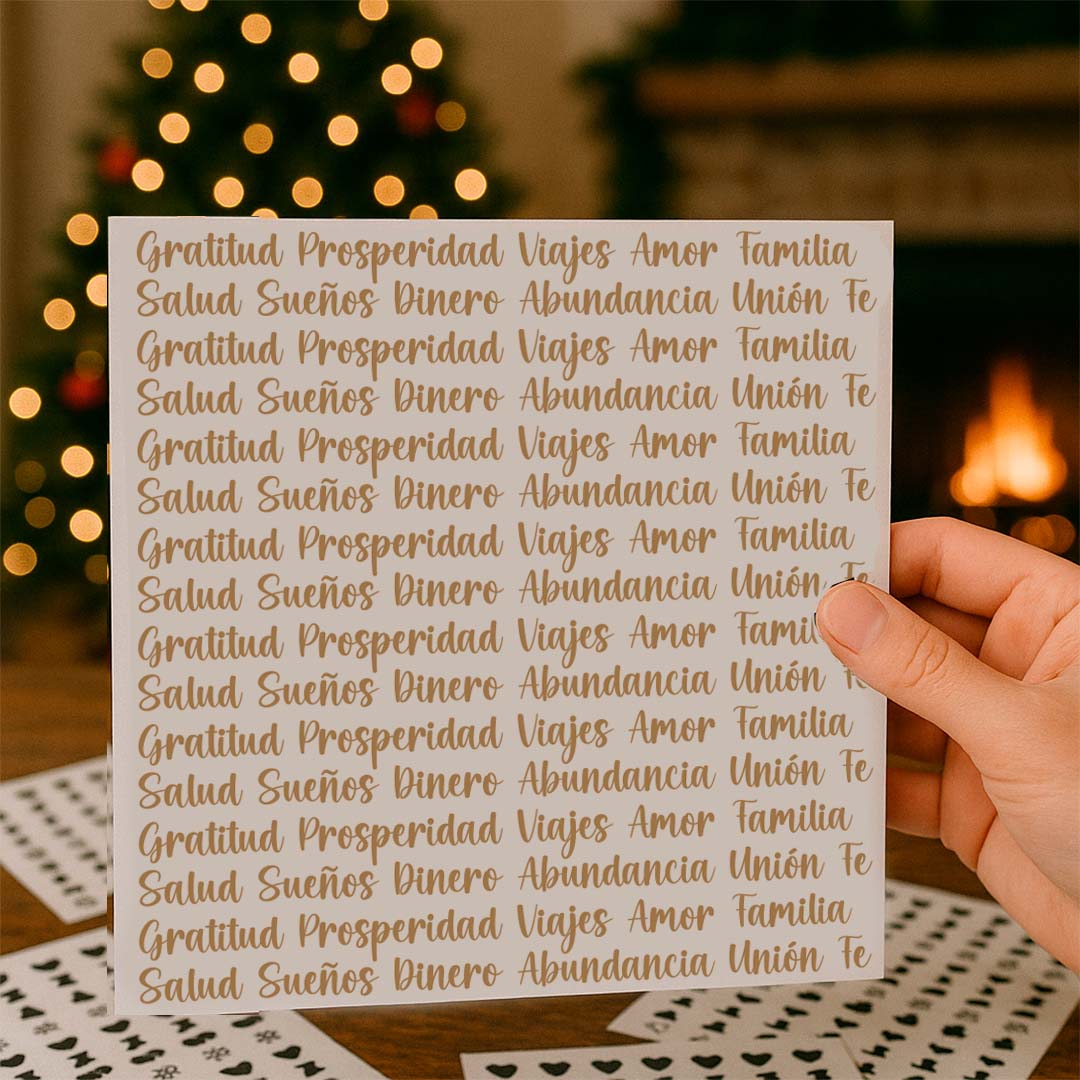 Gratitud Prosperidad Viajes Amor Familia
Salud Sueños Dinero Abundancia Unión Fe
Gratitud Prosperidad Viajes Amor Familia
Salud Sueños Dinero Abundancia Unión Fe
Gratitud Prosperidad Viajes Amor Familia
Salud Sueños Dinero Abundancia Unión Fe
Gratitud Prosperidad Viajes Amor Familia
Salud Sueños Dinero Abundancia Unión Fe
Gratitud Prosperidad Viajes Amor Fami
Salud Sueños Dinero Abundancia Unión Fe
Gratitud Prosperidad Viajes Amor Familia
Salud Sueños Dinero Abundancia Unión Fe
Gratitud Prosperidad Viajes Amor Familia
Salud Sueños Dinero Abundancia Unión Fe
Gratitud Prosperidad Viajes Amor Familia
Salud Sueños Dinero Abundancia Unión Fe